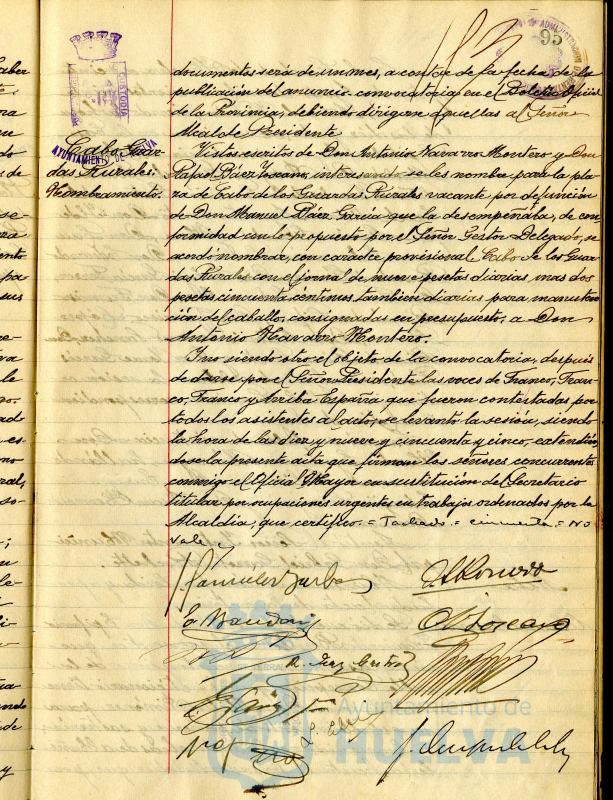 95
documentos será de un mes, a contar de la fecha de la
publicación del anuncio convocatoria en el Boletín Oficial
de la Provincia, debiendo dirigirse aquellas al Señor
Alcalde Presidente
Cabo Guar-
das Rurales.
Nombramiento.
AYUNTAMIENTO DE HUELVA
Vistos escritos de Don Antonio Navarro Montero y Don
Rafael Báez Toscano, interesando se les nombre para la pla-
za de Cabo de los Guardas Rurales vacante por defunción
de Don Manuel Báez García que la desempeñaba, de con-
formidad con lo propuesto por el Señor Gestor Delegado, se
acordó nombrar, con carácter provisional, Cabo de los Guar-
das Rurales con el jornal de nueve pesetas diarias, mas dos
pesetas cincuenta céntimos tambien diarias para manuten-
ción del caballo, consignadas en presupuesto, a Don
Antonio Navarro Montero.
Y no siendo otro el objeto de la convocatoria, después
de darse por el Señor Presidente las voces de Franco, Fran-
co, Franco y Arriba España que fueron contestadas por
todos los asistentes al acto, se levantó la sesión, siendo
la hora de las diez y nueve y cincuenta y cinco, extendién-
dose la presente acta que firman los señores concurrentes
conmigo el Oficial Mayor en sustitución del Secretario
titular por ocupaciones urgentes en trabajos ordenados por la
Alcaldía, que certifico. = Tachado = cincuenta = No
vale.
Ayuntamiento de
HUELVA